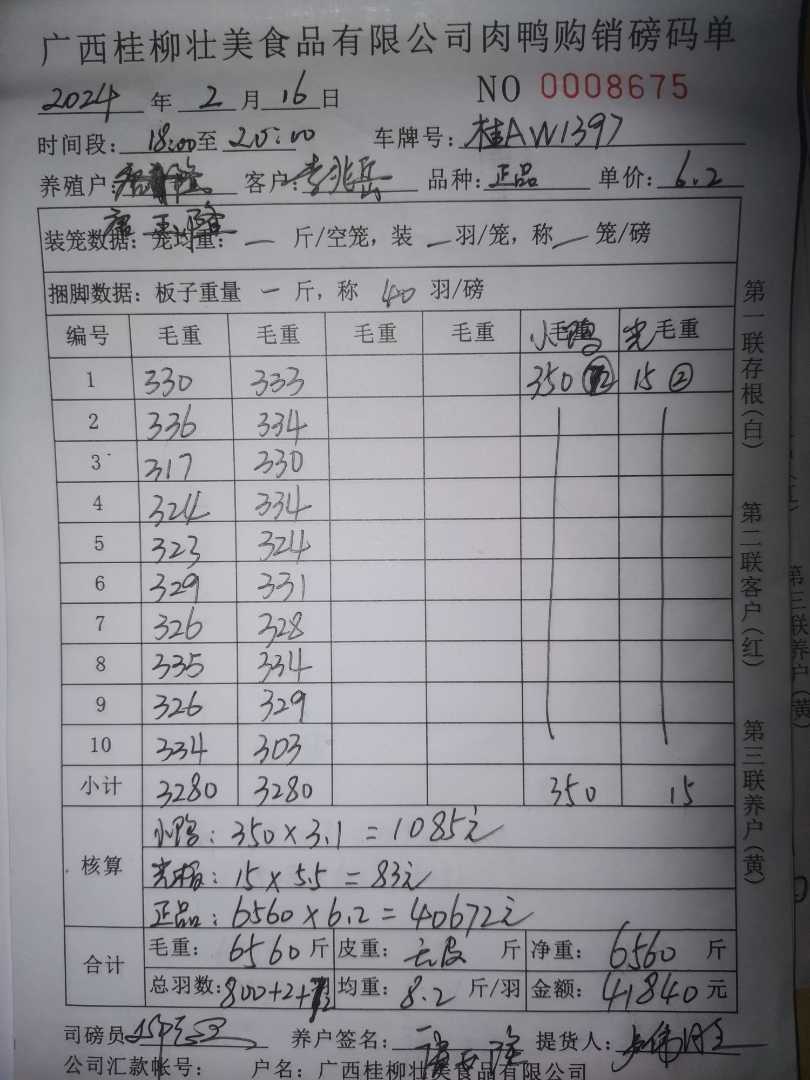 广西桂柳壮美食品有限公司肉鸭购销磅码单
2024 年 2 月 16 日 NO 0008675
时间段: 18:00 至 20:00 车牌号: 桂AW1397
养殖户: 客户: 李兆岳 品种: 正品 单价: 6.2
装笼数据: 笼均重: 一 斤/空笼, 装 一 羽/笼, 称 一 笼/磅
捆脚数据: 板子重量 一 斤, 称 40 羽/磅
编号 毛重 毛重 毛重 毛重 小鸭 毛重 光 毛重
1 330 333 350 15 ②
2 336 334
3 317 330
4 324 334
5 323 324
6 329 331
7 326 328
8 335 334
9 326 329
10 334 303
小计 3280 3280 350 15
核算 小鸭: 350×3.1=1085元
光板: 15×5.5=83元
正品: 6560×6.2=40672元
合计 毛重: 6560 斤 皮重: 去皮 斤 净重: 6560 斤
总羽数: 800+2+12 均重: 8.2 斤/羽 金额: 41840 元
司磅员 养户签名: 提货人:
公司汇款帐号: 户名: 广西桂柳壮美食品有限公司
第一联存根(白) 第二联客户(红) 第三联养户(黄)
第三联养户(黄)